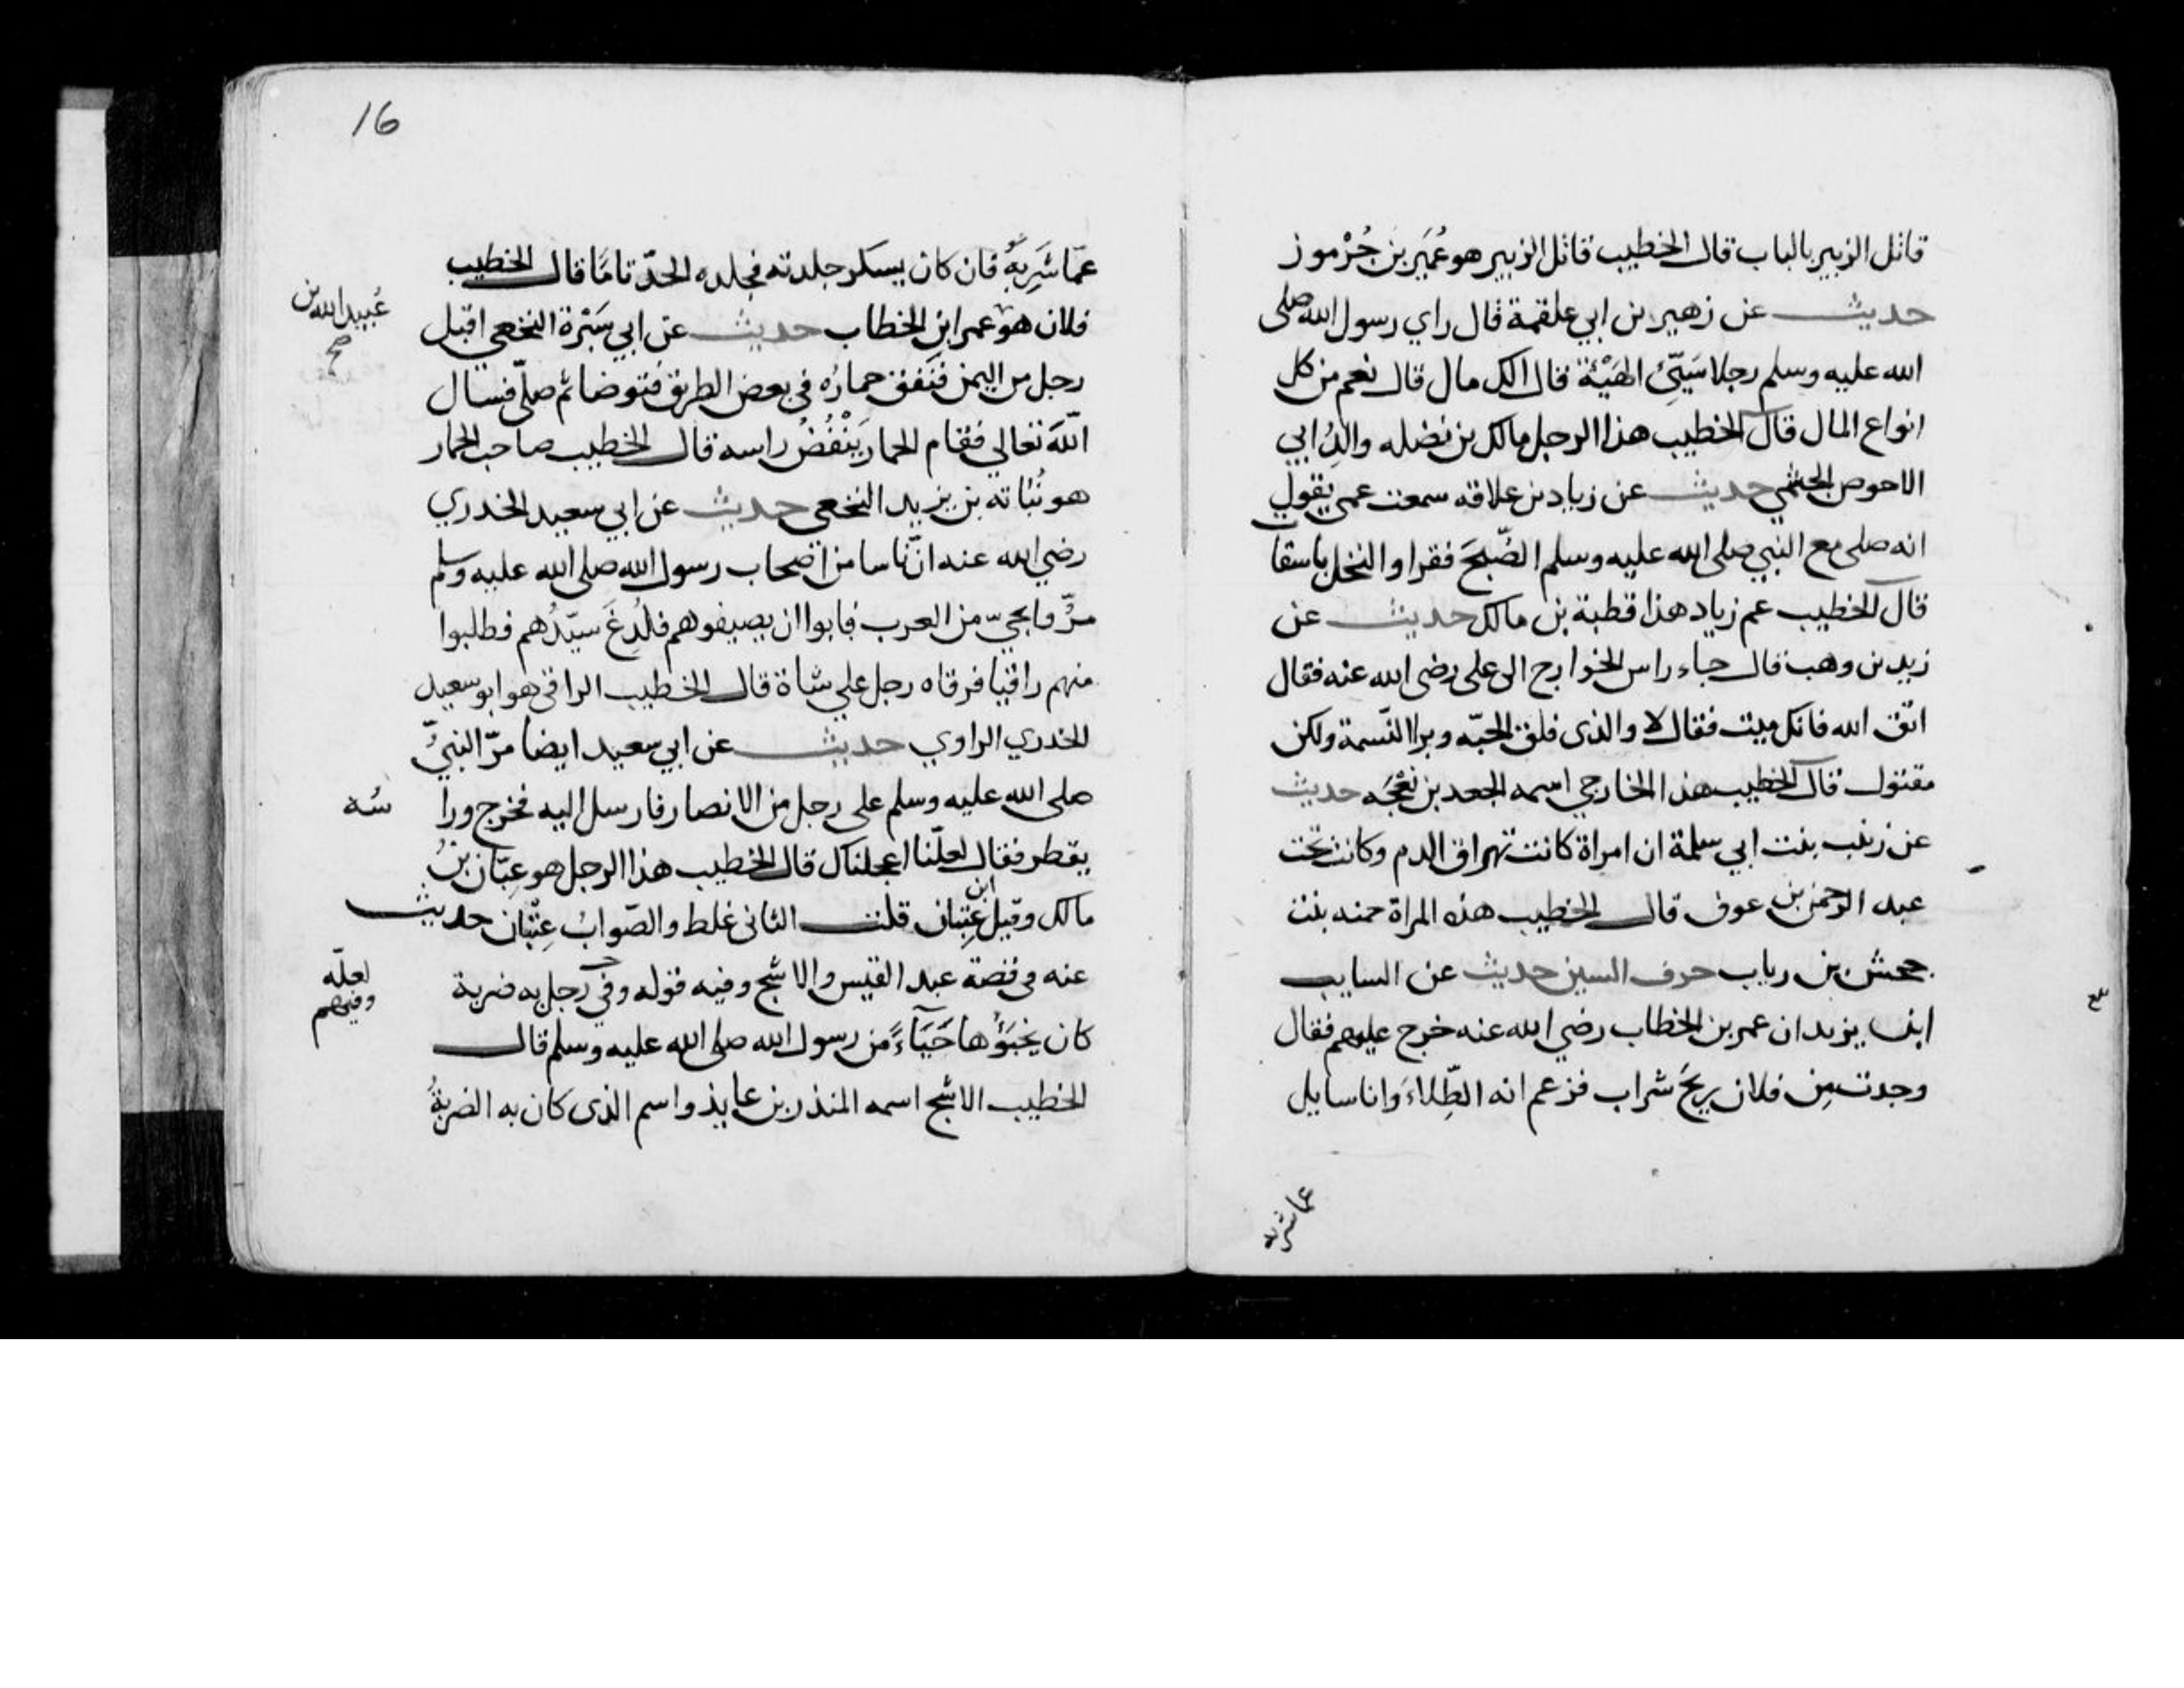 قاتل الزبير بالباب قال الخطيب قاتل الزبير هو عُمَير بن جُرْموز
حديث عن زهير بن ابي علقمة قال راي رسول الله صلى
الله عليه وسلم رجلا سَيِّئَ الهَيْئَة قال الك مال قال نعم من كل
انواع المال قال الخطيب هذا الرجل مالك بن نضله والدُ ابي
الاحوص الجشمي حديث عن زياد بن علاقه سمعت عمى يقول
انه صلى مع النبي صلى الله عليه وسلم الصُّبحَ فقرا والنخل باسقات
قال الخطيب عم زياد هذا قطبة بن مالك حديث عن
زيد بن وهب قال جاء راس الخوارج الى على رضى الله عنه فقال
اتق الله فانك ميت فقال لا والذى فلق الحبّه وبرا النّسمة ولكن
مقتول قال الخطيب هذا الخارجي اسمه الجعد بن نَعْجَه حديث
عن زينب بنت ابي سلمة ان امراة كانت تهراق الدم وكانت تحت
عبد الرحمن بن عوف قال الخطيب هذه المراة حمنه بنت
جحش بن رياب حرف السين حديث عن السايب
ابن يزيد ان عمر بن الخطاب رضي الله عنه خرج عليهم فقال
وجدت مِن فلان ريحَ شراب فزعم انه الطِّلاءَ وانا سايل
عما شربه
16
عمّا شَرِبَهُ فان كان يسكر جلدته فجلده الحدّ تامّا قال الخطيب
فلان هو عمر ابن الخطاب حديث عن ابي سَبْرة النخعي اقبل
عُبيد الله بن
صح
رجل من اليمن فنَفق حمارُه في بعض الطريق فتوضا ثم صلّى فسال
اللهَ تعالي فقام الحمار يَنْفُضُ راسه قال الخطيب صاحب الحمار
هو نُبَاتة بن يزيد النخعي حديث عن ابي سعيد الخدري
رضي الله عنه انّ ناسا من اصحاب رسول الله صلى الله عليه وسلم
مرُّوا بحيّ من العرب فابوا ان يضيفوهم فلُدِغَ سيّدُهم فطلبوا
منهم راقيا فرقاه رجل علي شاة قال الخطيب الراقى هو ابو سعيد
الخدري الراوي حديث عن ابي سعيد ايضا مرّ النبيُّ
صلى الله عليه وسلم على رجل من الانصار فارسل اليه فخرج ورا
سُه
يقطر فقال لعلّنا اعجلناك قال الخطيب هذا الرجل هو عِتبان بنُ
مالك وقيل ابن عِتبان قلت الثانى غلط والصّوابُ عِتْبَان حديث
عنه فى قصة عبد القيس والاشج وفيه قوله وفى رجل به ضربة
لعلّه
وفيهم
كان يَخبَؤُها حَيَآءً من رسول الله صلى الله عليه وسلم قال
الخطيب الاشج اسمه المنذر بن عايذ واسم الذى كان به الضربةُ